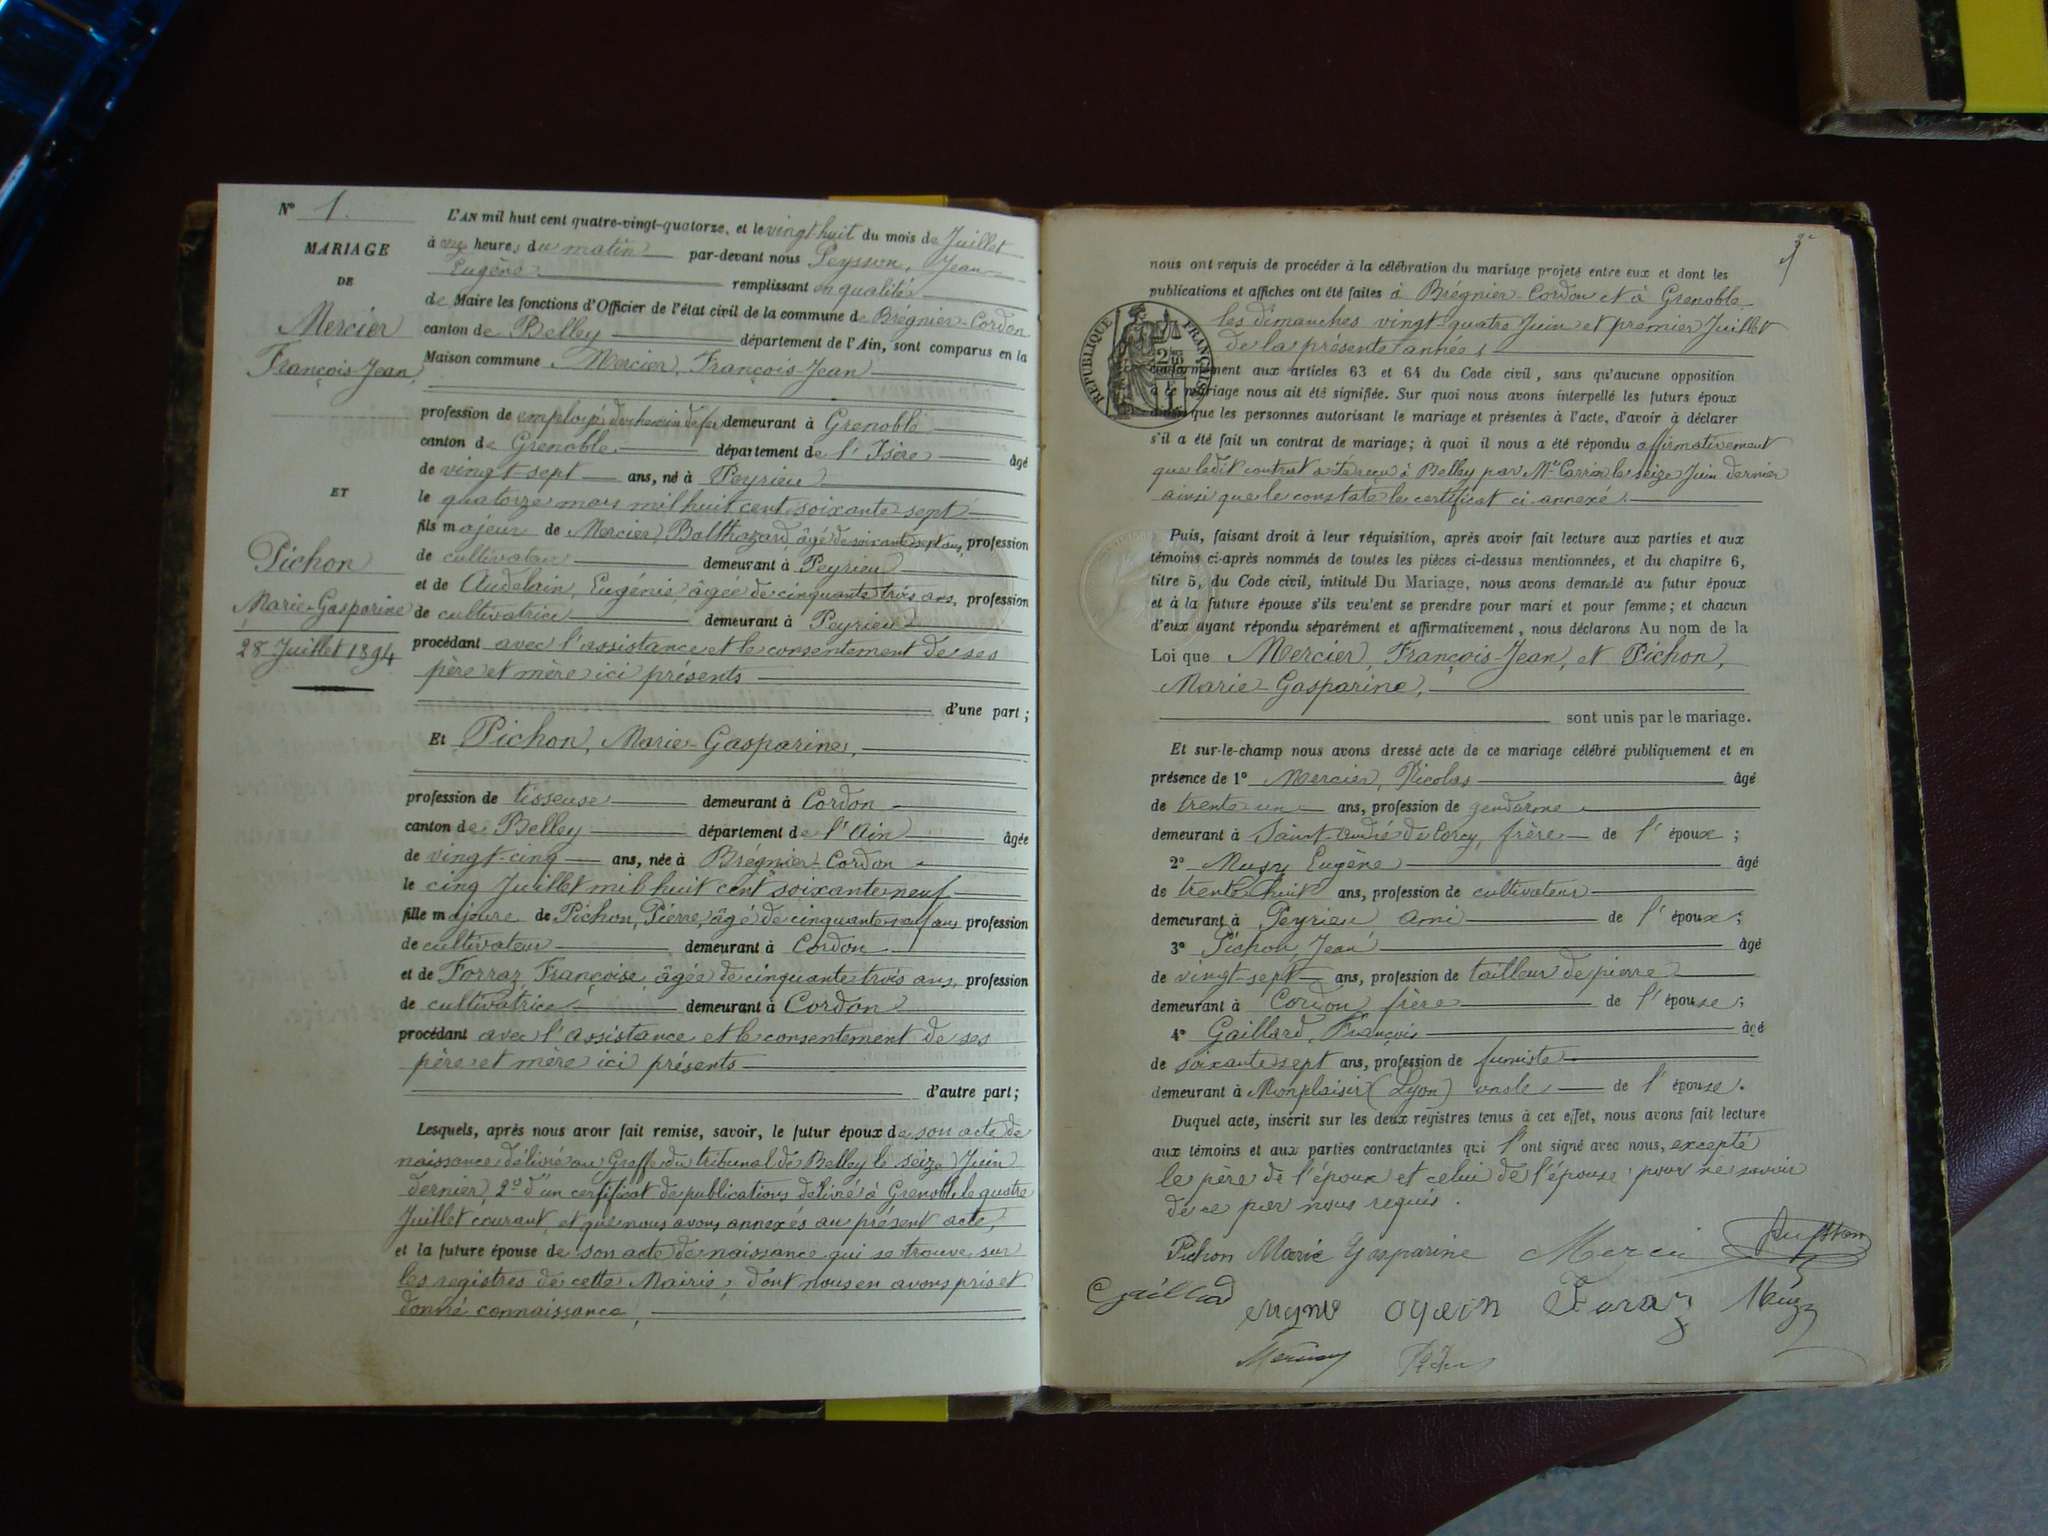 N° 1.
MARIAGE
DE
Mercier
François Jean
ET
Pichon
Marie-Gasparine
28 Juillet 1894
L'AN mil huit cent quatre-vingt-quatorze, et le vingt-huit du mois de Juillet
à heures du matin par-devant nous Peysson, Jean
Eugène remplissant en qualité
de Maire les fonctions d'Officier de l'état civil de la commune de Brégnier-Cordon
canton de Belley département de l'Ain, sont comparus en la
Maison commune Mercier, François-Jean
profession de employé du chemin de fer demeurant à Grenoble
canton de Grenoble département de l'Isère âgé
de vingt-sept ans, né à Peyrieu
le quatorze mars mil huit cent soixante sept
fils majeur de Mercier, Balthazard, âgé de soixante sept ans, profession
de cultivateur demeurant à Peyrieu
et de Audelain, Eugénie, âgée de cinquante trois ans, profession
de cultivatrice demeurant à Peyrieu
procédant avec l'assistance et le consentement de ses
père et mère ici présents
d'une part;
Et Pichon, Marie-Gasparine,
profession de tisseuse demeurant à Cordon
canton de Belley département de l'Ain âgée
de vingt-cinq ans, née à Brégnier-Cordon
le cinq Juillet mil huit cent soixante neuf
fille majeure de Pichon, Pierre, âgé de cinquante neuf ans profession
de cultivateur demeurant à Cordon
et de Forraz, Françoise, âgée de cinquante trois ans, profession
de cultivatrice demeurant à Cordon
procédant avec l'assistance et le consentement de ses
père et mère ici présents
d'autre part;
Lesquels, après nous avoir fait remise, savoir, le futur époux de son acte de
naissance délivré au Greffe du tribunal de Belley le seize Juin
dernier, 2° d'un certificat de publications délivré à Grenoble le quatre
Juillet courant, et que nous avons annexés au présent acte,
et la future épouse de son acte de naissance qui se trouve sur
les registres de cette Mairie, dont nous en avons pris et
donné connaissance,
nous ont requis de procéder à la célébration du mariage projeté entre eux et dont les
publications et affiches ont été faites à Brégnier-Cordon et à Grenoble
les dimanches vingt-quatre Juin et premier Juillet
de la présente année,
RÉPUBLIQUE FRANÇAISE
conformément aux articles 63 et 64 du Code civil, sans qu'aucune opposition
à ce mariage nous ait été signifiée. Sur quoi nous avons interpellé les futurs époux
ainsi que les personnes autorisant le mariage et présentes à l'acte, d'avoir à déclarer
s'il a été fait un contrat de mariage; à quoi il nous a été répondu affirmativement
que ledit contrat a été reçu à Belley par Me Carrier le seize Juin dernier
ainsi que le constate le certificat ci-annexé.
Puis, faisant droit à leur réquisition, après avoir fait lecture aux parties et aux
témoins ci-après nommés de toutes les pièces ci-dessus mentionnées, et du chapitre 6,
titre 5, du Code civil, intitulé Du Mariage, nous avons demandé au futur époux
et à la future épouse s'ils veulent se prendre pour mari et pour femme; et chacun
d'eux ayant répondu séparément et affirmativement, nous déclarons Au nom de la
Loi que Mercier, François-Jean, et Pichon,
Marie-Gasparine,
sont unis par le mariage.
Et sur-le-champ nous avons dressé acte de ce mariage célébré publiquement et en
présence de 1° Mercier, Nicolas âgé
de trente-un ans, profession de gendarme
demeurant à Saint-André de Corcy, frère de l'époux;
2° Muzy Eugène âgé
de trente huit ans, profession de cultivateur
demeurant à Peyrieu ami de l'époux;
3° Pichon, Jean âgé
de vingt-sept ans, profession de tailleur de pierre
demeurant à Cordon frère de l'épouse;
4° Gaillard, François âgé
de soixante sept ans, profession de fumiste
demeurant à Monplaisir (Lyon) oncle de l'épouse.
Duquel acte, inscrit sur les deux registres tenus à cet effet, nous avons fait lecture
aux témoins et aux parties contractantes qui l'ont signé avec nous, excepté
le père de l'époux et celui de l'épouse pour ne savoir
de ce par nous requis.
Pichon Marie Gasparine Mercier Peysson
Gaillard Foraz Muzy